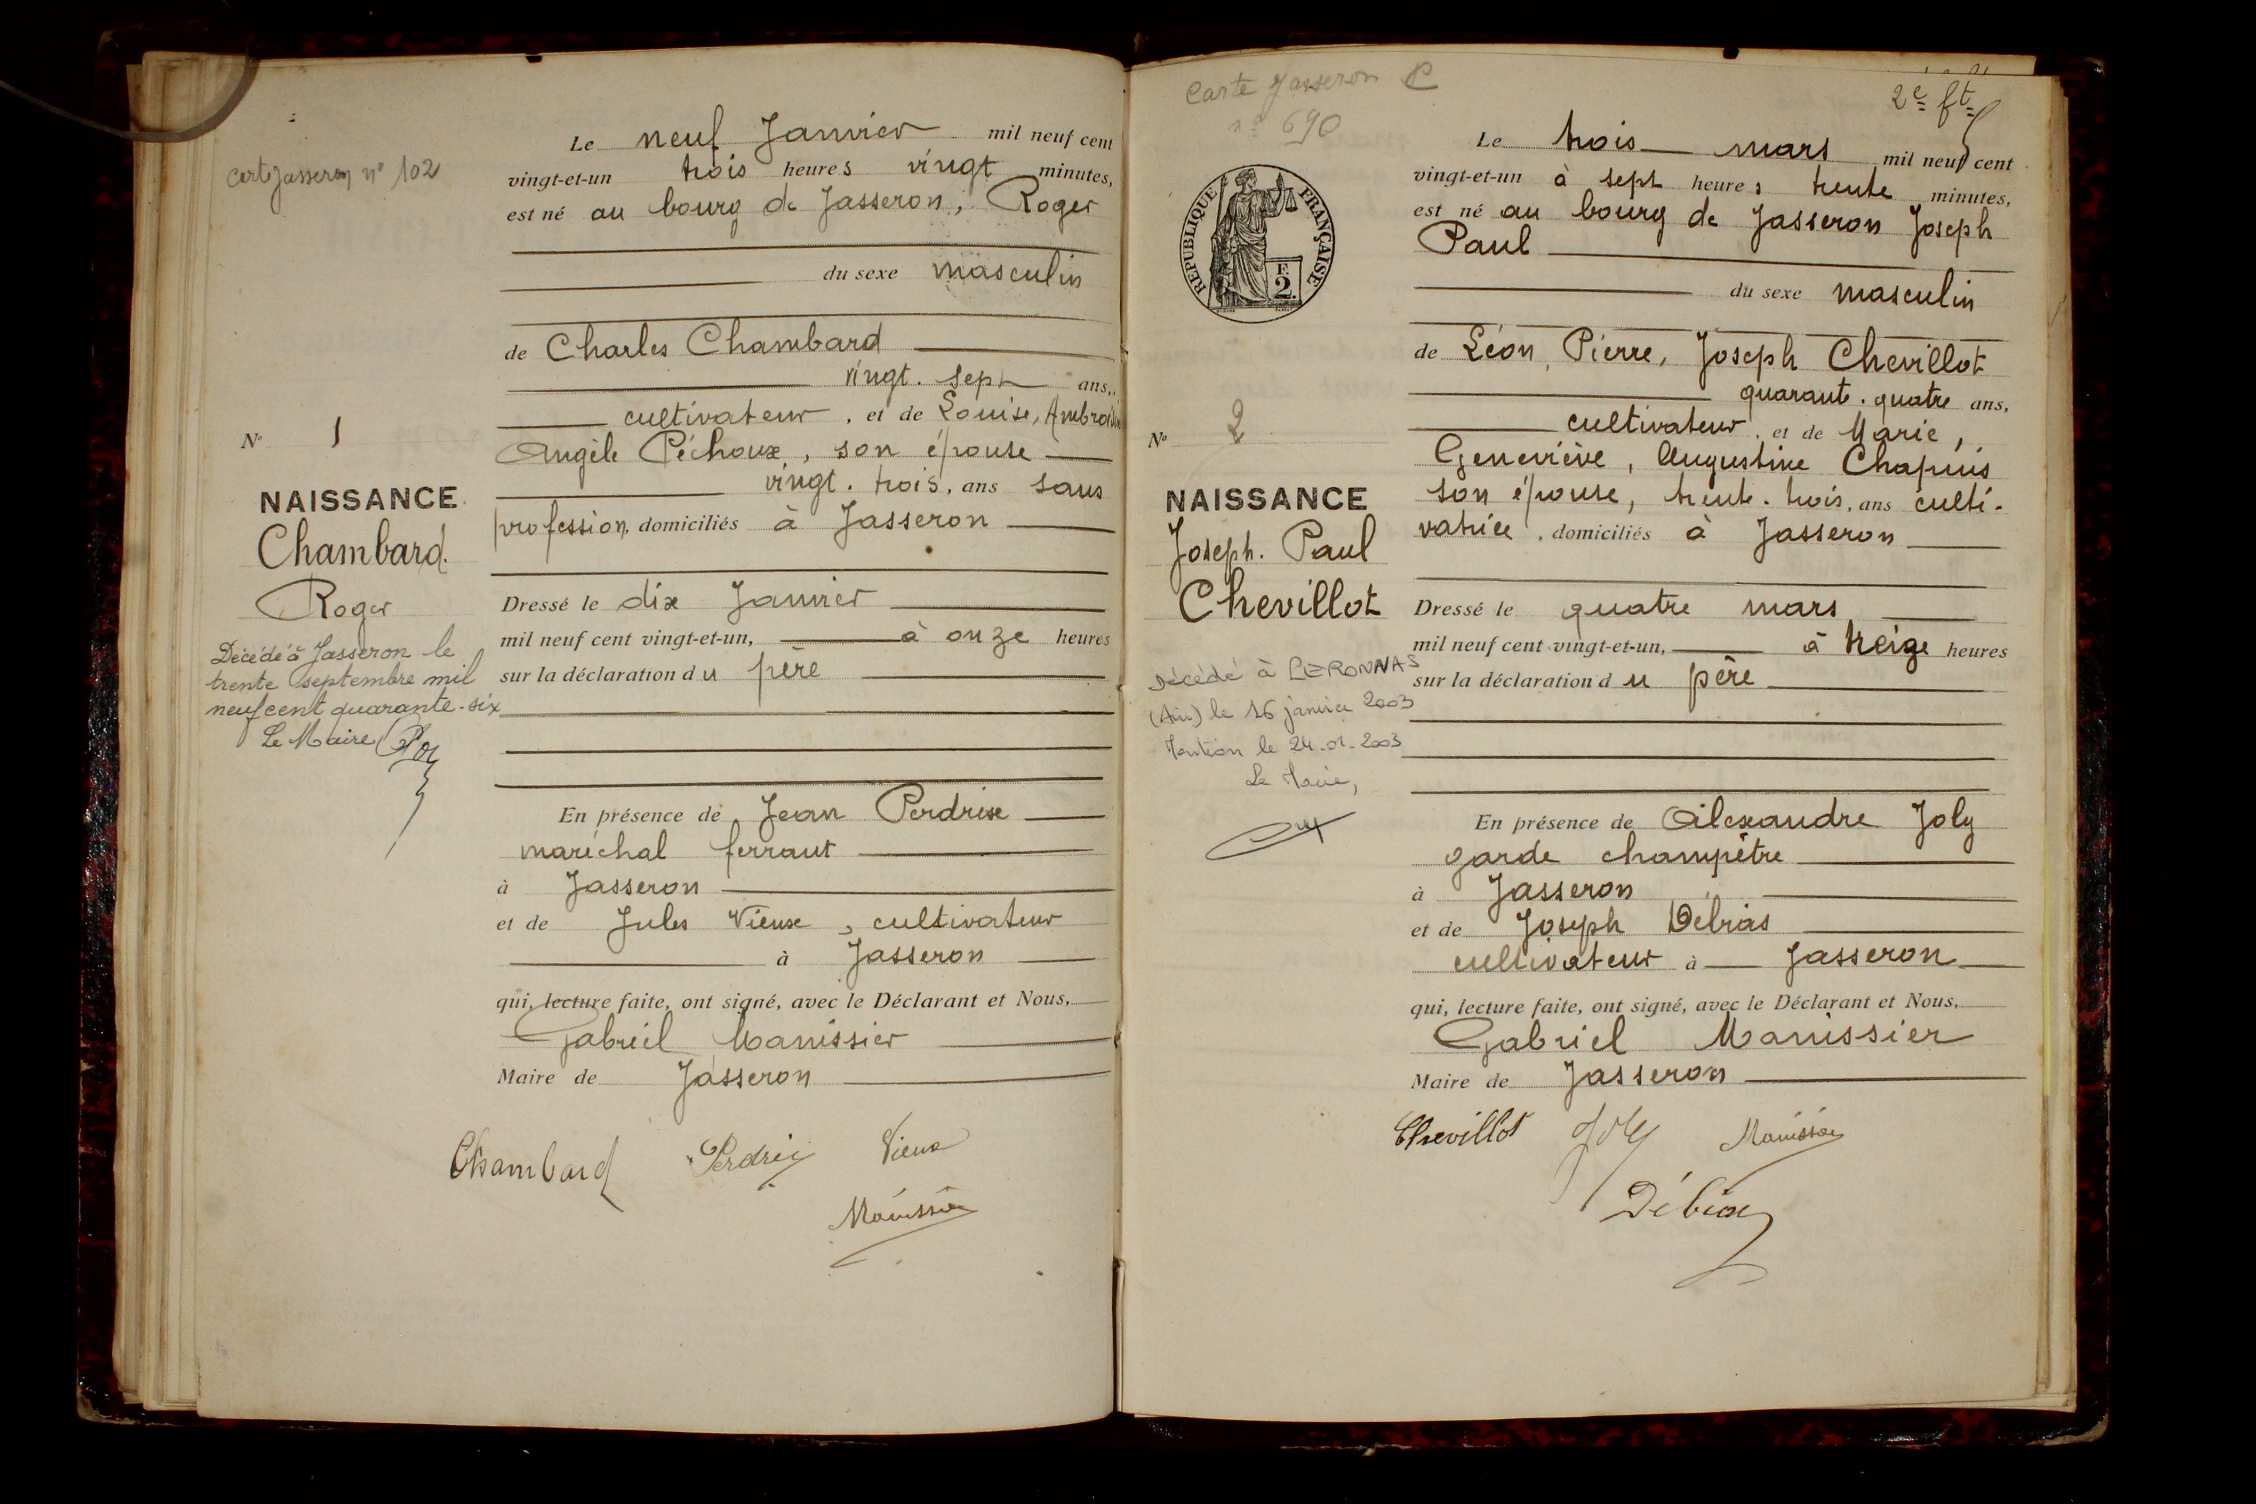 Carte Jasseron n° 102
Le neuf Janvier mil neuf cent
vingt-et-un trois heures vingt minutes,
est né au bourg de Jasseron, Roger
du sexe masculin
de Charles Chambard
vingt. sept ans,
cultivateur, et de Louise, Ambroisine
Angèle Péchoux, son épouse
vingt. trois, ans sans
profession, domiciliés à Jasseron
N° 1
NAISSANCE
Chambard.
Roger
Décédé à Jasseron le
trente septembre mil
neuf cent quarante-six
Le Maire
Dressé le dix Janvier
mil neuf cent vingt-et-un, à onze heures
sur la déclaration du père
En présence de Jean Perdrix
maréchal ferrant
à Jasseron
et de Jules Vieux, cultivateur
à Jasseron
qui, lecture faite, ont signé, avec le Déclarant et Nous,
Gabriel Manissier
Maire de Jasseron
Chambard Perdrix Vieux
Manissier
Carte Jasseron C
n° 690
2e ft
RÉPUBLIQUE FRANÇAISE
F.
2.
Le trois mars mil neuf cent
vingt-et-un à sept heures trente minutes,
est né au bourg de Jasseron Joseph
Paul
du sexe masculin
de Léon, Pierre, Joseph Chevillot
quarante. quatre ans,
cultivateur, et de Marie,
Geneviève, Augustine Chapuis
son épouse, trente. trois, ans culti-
vatrice, domiciliés à Jasseron
N° 2
NAISSANCE
Joseph. Paul
Chevillot
Décédé à PERONNAS
(Ain) le 16 janvier 2003
Mention le 24-01-2003
Le Maire,
Dressé le quatre mars
mil neuf cent vingt-et-un, à treize heures
sur la déclaration du père
En présence de Alexandre Joly
garde champêtre
à Jasseron
et de Joseph Débias
cultivateur à Jasseron
qui, lecture faite, ont signé, avec le Déclarant et Nous,
Gabriel Manissier
Maire de Jasseron
Chevillot Joly Manissier